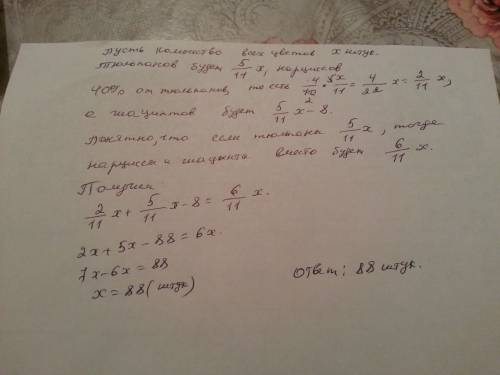 Пусть количество всех цветов x штук.
Тюльпанов будет 5/11 x, нарциссов
40% от тюльпанов, то есть 4/10 · 5x/11 = 4/22 x = 2/11 x,
а гиацинтов будет 5/11 x - 8.
Понятно, что если тюльпаны 5/11 x, тогда
нарциссы и гиацинты вместе будет 6/11 x.
Получим
2/11 x + 5/11 x - 8 = 6/11 x.
2x + 5x - 88 = 6x.
7x - 6x = 88
x = 88 (штук)
Ответ: 88 штук.